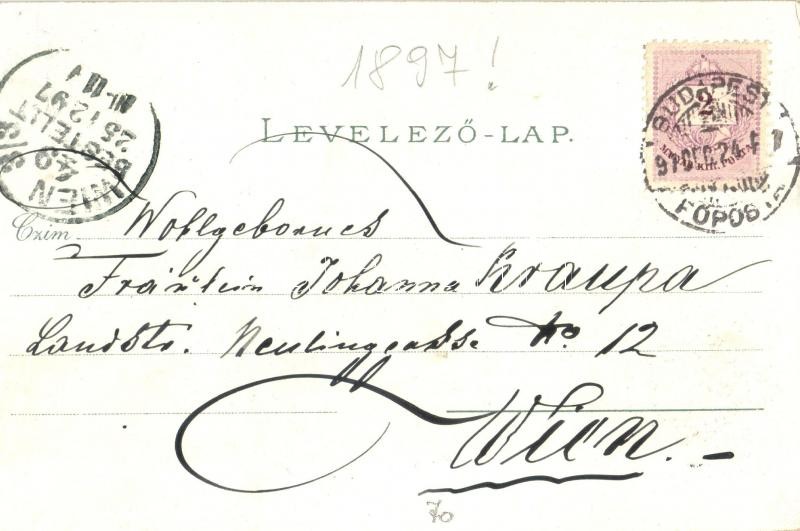 1897!
LEVELEZŐ-LAP.
WIEN
40
BESTELLT
25 12 97
BUDAPEST
2
97 DEC 24
FŐPOSTA
Czim Wohlgeborenes
Fräulein Johanna Kraupa
Landstr. Neulinggasse No. 12
Wien.
70